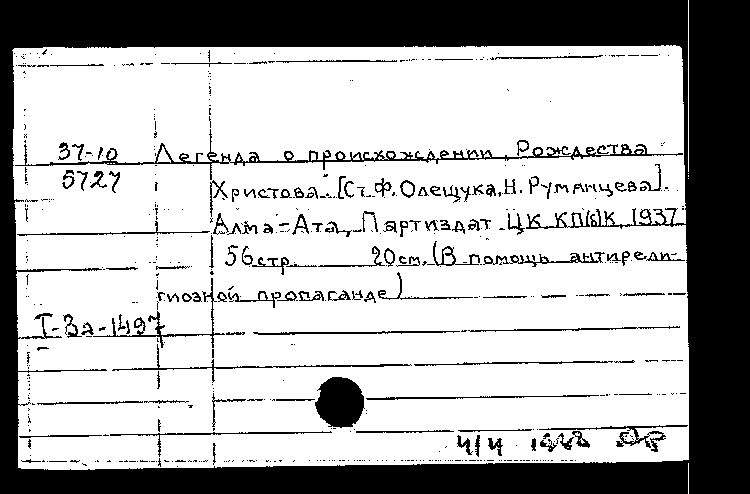 37-10 Легенда о происхождении Рождества
5727 Христова. [Ст. Ф. Олещука, Н. Румянцева].
Алма-Ата, Партиздат ЦК КП(б)К, 1937
56 стр. 20 см. (В помощь антирели-
гиозной пропаганде)
Т-3а-1497
4/4